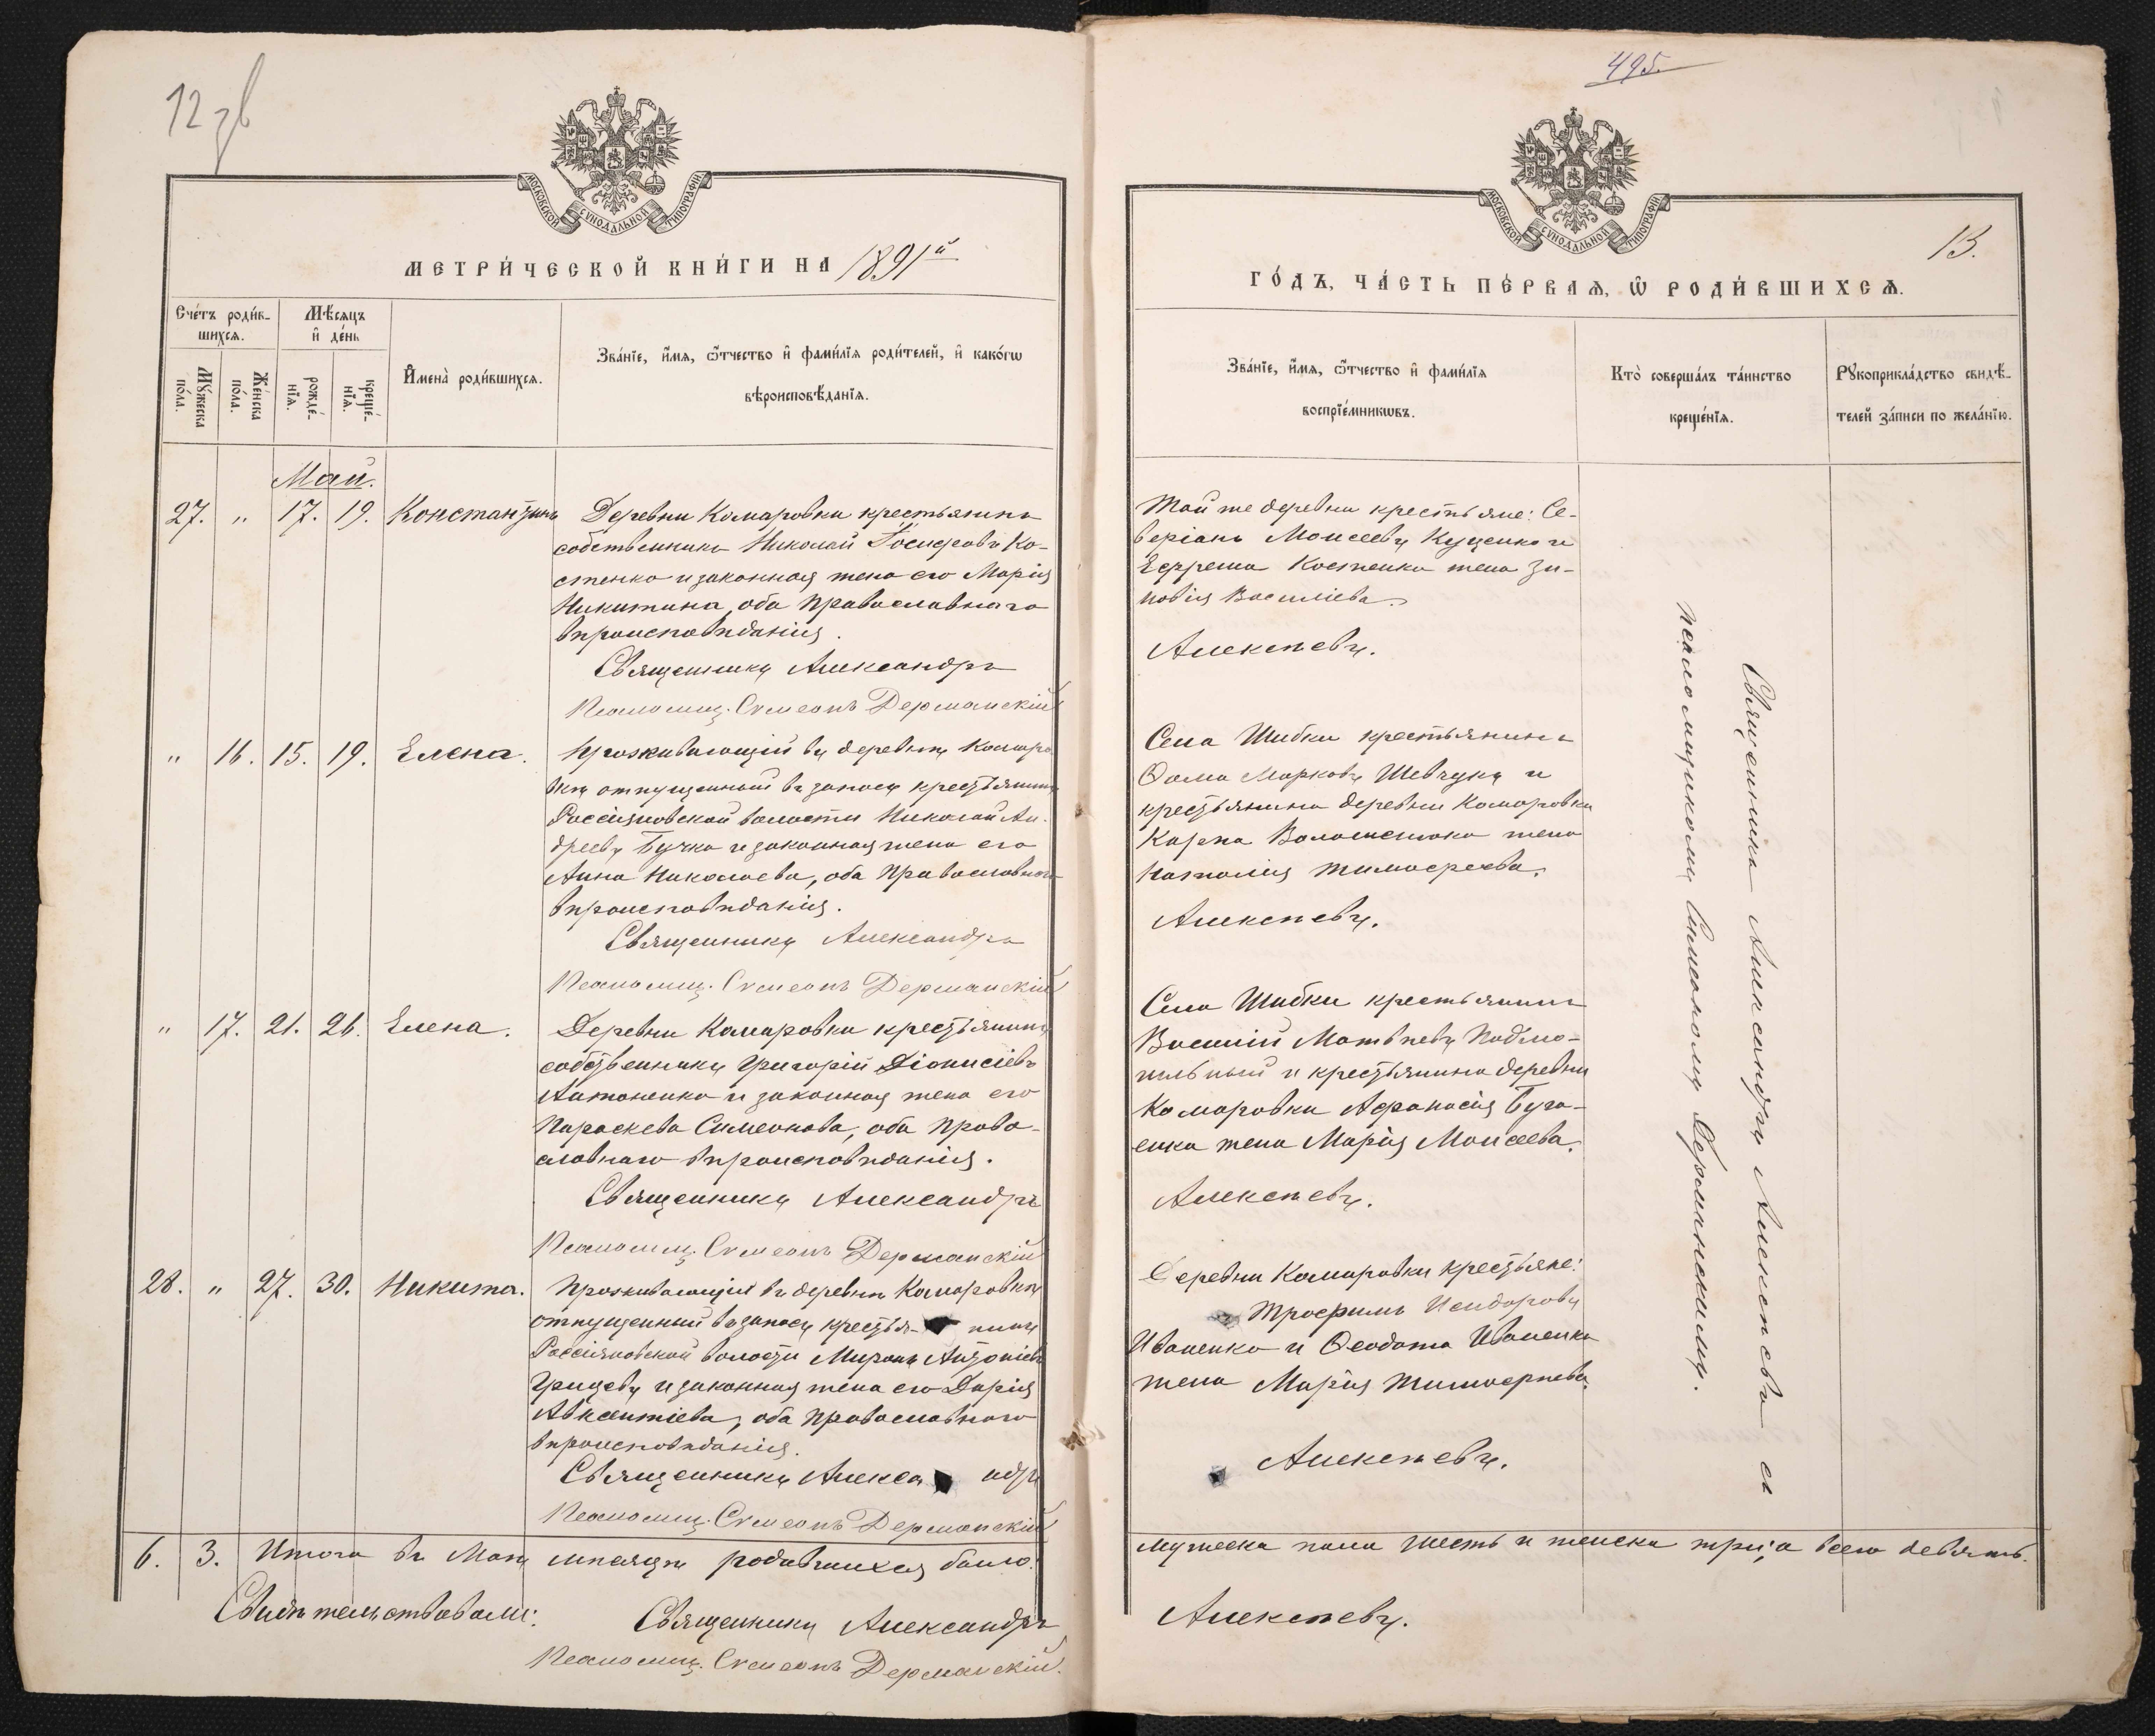 12 зв
МОСКОВСКОЙ СУНОДАЛЬНОЙ ТИПОГРАФІИ
МЕТРИ́ЧЕСКОЙ КНИ́ГИ НА 1891й
Сче́тъ роди́в-
шихсѧ.
Мѣсѧцъ
и҆ де́нь
И҆мена̀ роди́вшихсѧ.
Зва́нїе, и҆́мѧ, ѻ҆́тчество и҆ фами́лїѧ роди́телей, и҆ како́гѡ
вѣроисповѣ́данїѧ.
Мꙋ́жеска
по́ла.
Же́нска
по́ла.
рожде́-
нїѧ.
креще́-
нїѧ.
Май.
27. " 17. 19. Константинъ
Деревни Комаровки крестьянинъ
собственникъ Николай Іосифовъ Ко-
стенко и законная жена его Марія
Никитина, оба Православнаго
вѣроисповѣданія.
Священникъ Александръ
Псаломщ. Симеонъ Дерманскій
" 16. 15. 19. Елена.
Проживающій въ деревнѣ Комаро
вкѣ отпущенный въ запасъ крестьянинъ
Россіяновской волости Николай Ан-
дреевъ Бучко и законная жена его
Анна Николаева, оба Православнаго
вѣроисповѣданія.
Священникъ Александръ
Псаломщ. Симеонъ Дерманскій
" 17. 21. 26. Елена.
Деревни Комаровки крестьянинъ
собственникъ Григорій Діонисіевъ
Антоненко и законная жена его
Параскева Симеонова, оба Право-
славнаго вѣроисповѣданія.
Священникъ Александръ
Псаломщ. Симеонъ Дерманскій
28. " 27. 30. Никита.
Проживающій въ деревнѣ Комаровкѣ
отпущенный въ запасъ крестья- нинъ
Россіяновской волости Миронъ Антоніевъ
Грицевъ и законная жена его Дарія
Авксентіева, оба Православнаго
вѣроисповѣданія.
Священникъ Алекса ндръ
Псаломщ. Симеонъ Дерманскій
6. 3. Итого въ Маѣ мѣсяцѣ родившихся было:
Свидѣтельствовали:
Священникъ Александръ
Псаломщ. Симеонъ Дерманскій.
495.
МОСКОВСКОЙ СУНОДАЛЬНОЙ ТИПОГРАФІИ
13.
ГО́ДЪ, ЧА́СТЬ ПЕ́РВАѦ, Ѡ҆ РОДИ́ВШИХСѦ.
Зва́нїе, и҆́мѧ, ѻ҆́тчество и҆ фами́лїѧ
воспрїе́мникѡвъ.
Кто̀ соверша́лъ та́инство
креще́нїѧ.
Рꙋкоприкла́дство свидѣ́-
телей за́писи по жела́нїю.
Той же деревни крестьяне: Се-
веріанъ Моисеевъ Куценко и
Ефрема Костенка жена Зи-
новія Василіева.
Алексѣевъ.
Села Шибки крестьянинъ
Ѳома Марковъ Шевчукъ и
крестьянина деревни Комаровки
Карпа Волошенюка жена
Наталія Тимофеева.
Алексѣевъ.
Села Шибки крестьянинъ
Василій Матвѣевъ Подмо-
гильный и крестьянина деревни
Комаровки Афанасія Буга-
енка жена Марія Моисеева.
Алексѣевъ.
Деревни Комаровки крестьяне:
Трофимъ Исидоровъ
Иваненко и Ѳеодота Иваненка
жена Марія Тимофеева.
Алексѣевъ.
Священникъ Александръ Алексѣевъ съ
псаломщикомъ Симеономъ Дерманскимъ.
мужеска пола шесть и женска три, а всего девять.
Алексѣевъ.